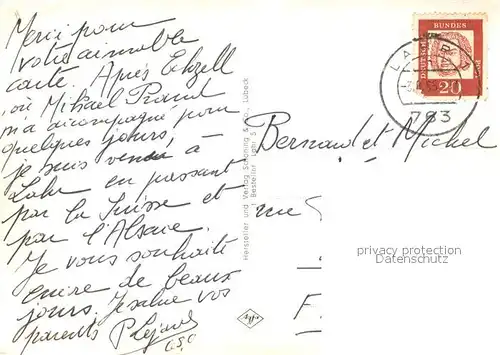 Merci pour
votre aimable
carte. Après Echzell
où Mikael
m'a accompagné pour
quelques jours,
je suis à
Lahr en passant
par la Suisse et
par l'Alsace.
Je vous souhaite
encore de beaux
jours. Je salue vos
parents P Lejeune
Hersteller und Verlag Schöning & Co., Lübeck
1 Besteller Lahr 5
Bernard et Michel
rue
F.
DEUTSCHE
BUNDES
POST
20
763
privacy protection
Datenschutz
Agfa